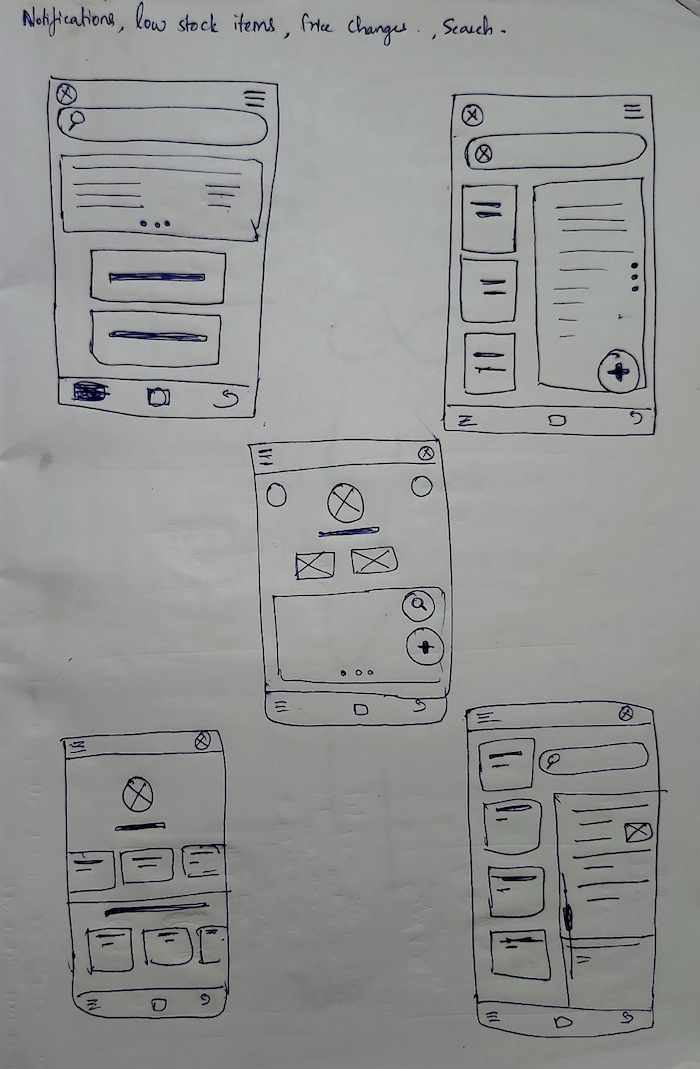 Notifications, low stock items, Price Changes., Search.